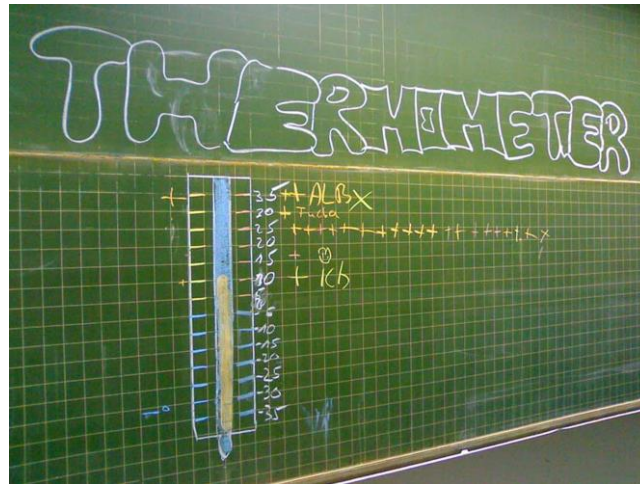 THERMOMETER
+ 35 ++ ALB X
30 +
25 +++++++++++++++++++
20
15 +
+ 10 + Kb
5
-5
-10
-15
-20
-25
-30
1° -35